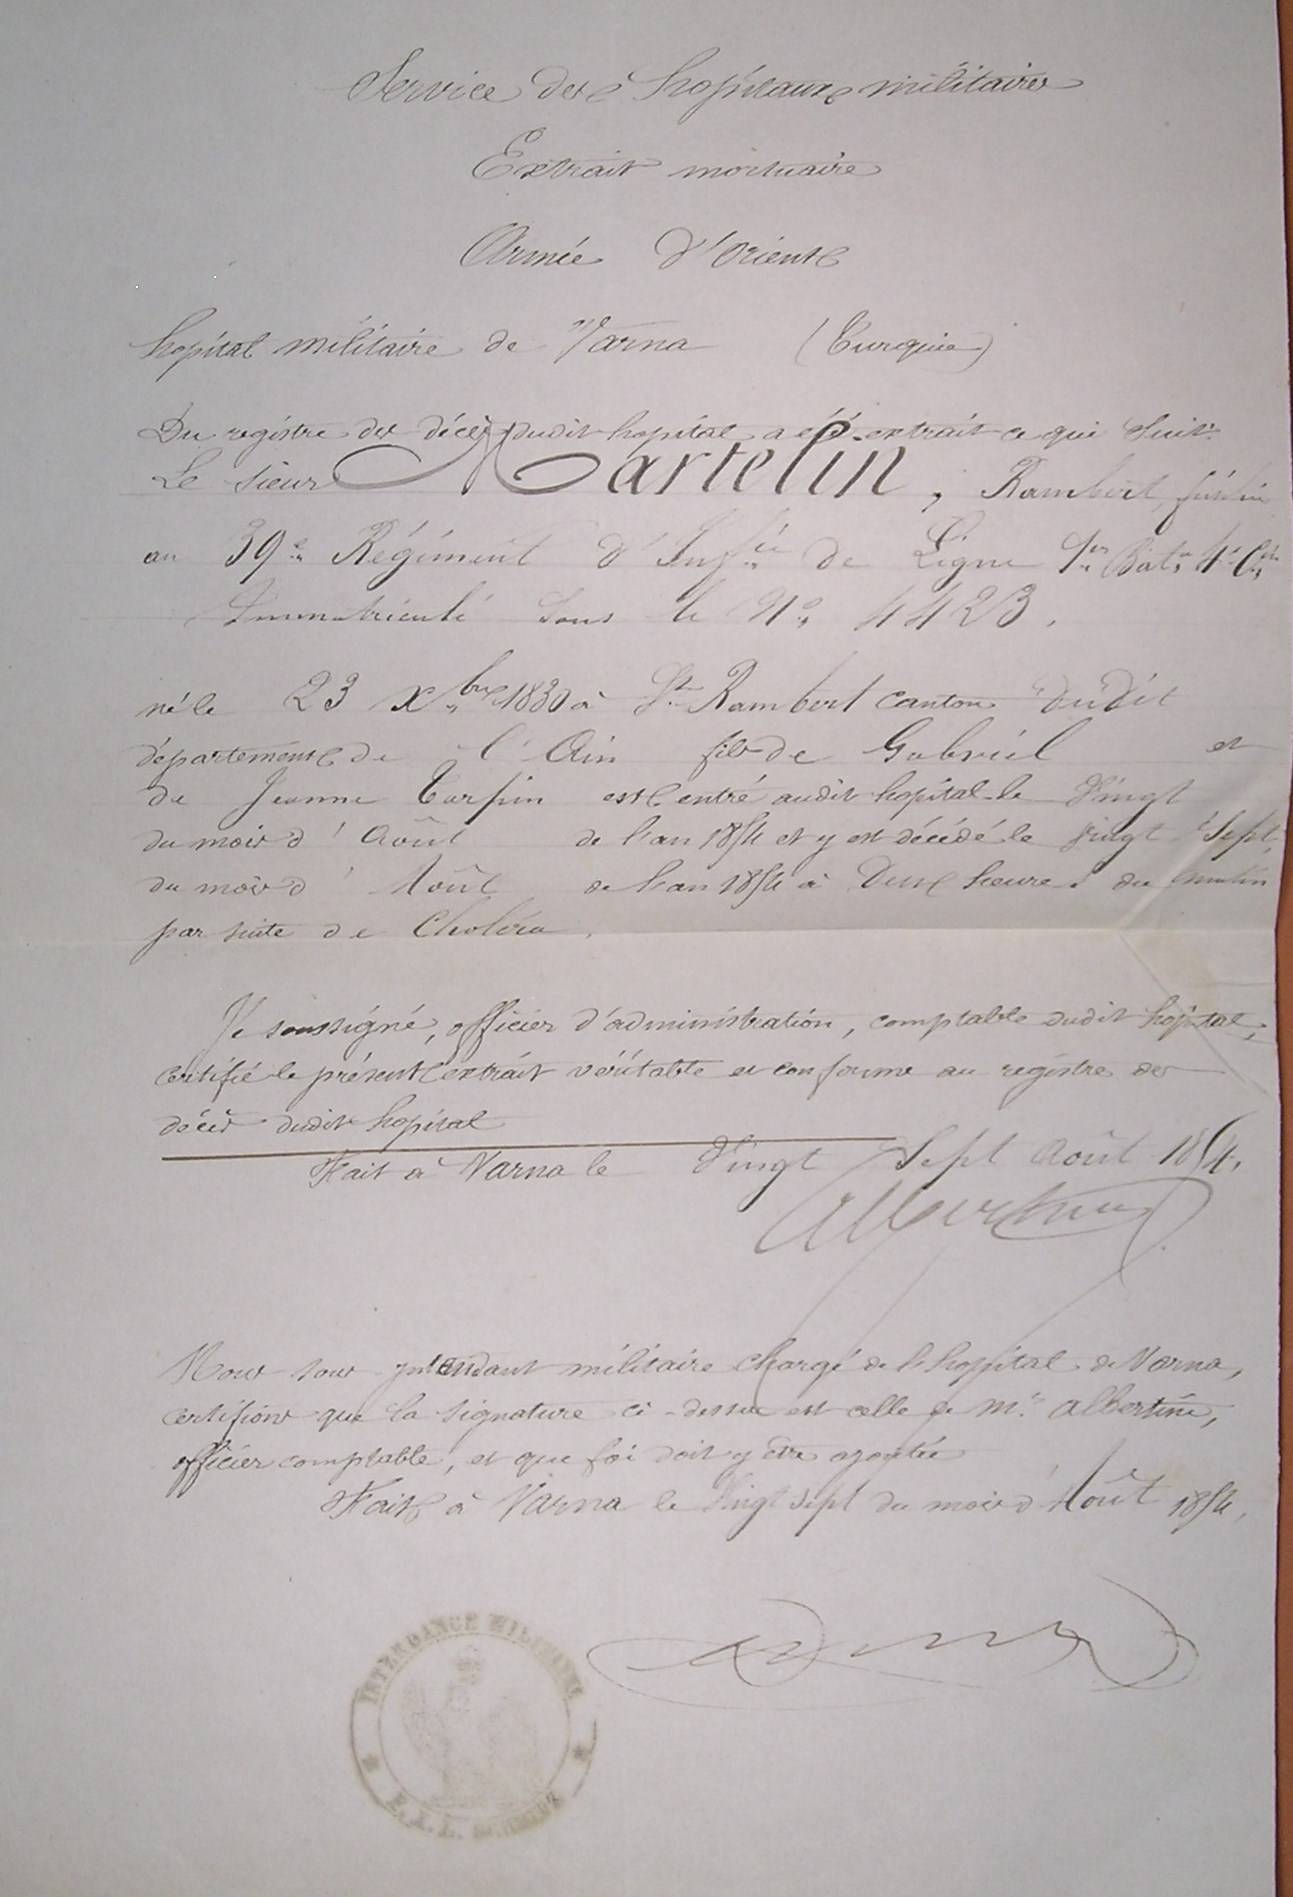 Service des hopitaux militaires
Extrait mortuaire
Armée d'Orient
hopital militaire de Varna (Turquie)
Du registre des décès dudit hopital a été extrait ce qui suit:
Le sieur Martelin, Rambert, fusilier
au 39e Régiment d'Infie de Ligne 1er Baton 4e Cie
Immatriculé sous le No 4423.
né le 23 Xbre 1830 à St Rambert canton dudit
département de l'Ain fils de Gabriel et
de Jeanne Turpin est entré audit hopital le Vingt
du mois d'Août de l'an 1854 et y est décédé le vingt Sept
du mois d'Août de l'an 1854 à Deux heures du matin
par suite de Choléra.
Je soussigné, officier d'administration, comptable dudit hôpital,
certifié le présent extrait véritable et conforme au registre des
décès dudit hopital
Fait à Varna le Vingt Sept Août 1854.
Nous sous Intendant militaire chargé de l'hopital de Varna,
certifions que la signature ci-dessus est celle de Mr Albertini,
officier comptable, et que foi doit y être ajoutée
Fait à Varna le Vingt Sept du mois d'Août 1854.
INTENDANCE MILITAIRE